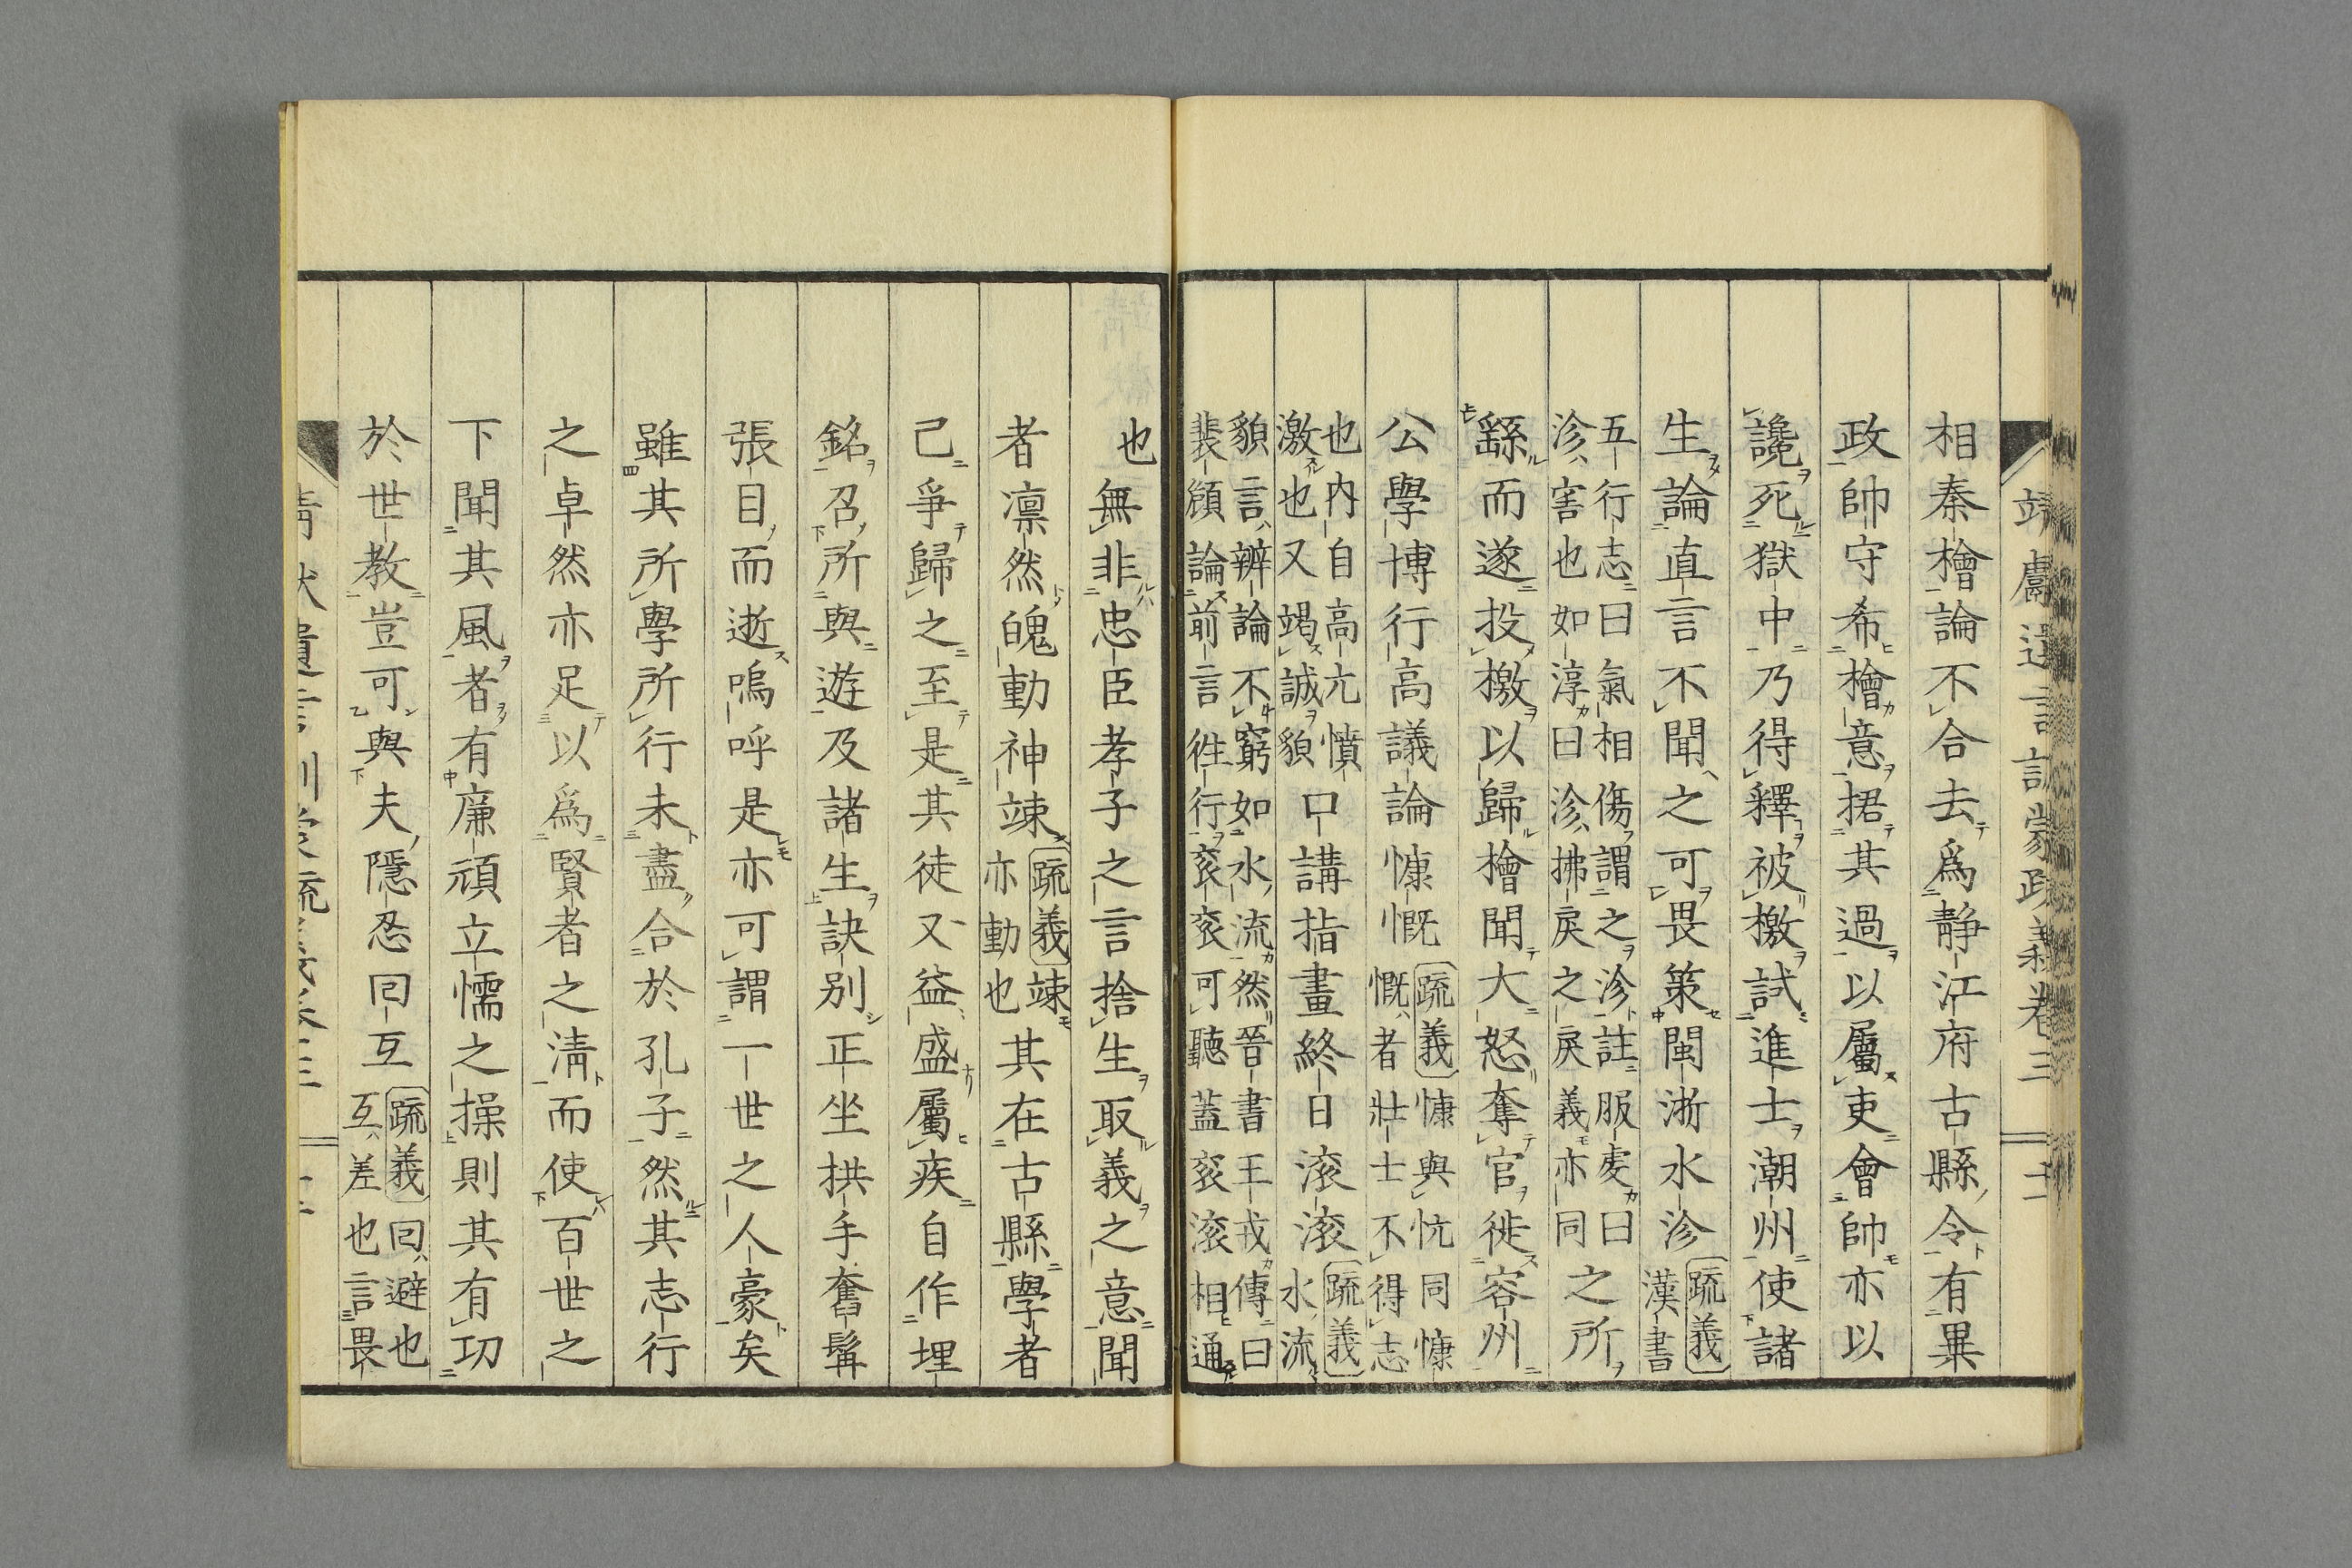 相秦檜論不合去爲靜江府古縣令有畢
政帥守希檜意捃其過以屬吏會帥亦以
讒死獄中乃得釋被檄試進士潮州使諸
生論直言不聞之可畏策閩浙水沴〔疏義〕漢書
五行志曰氣相傷謂之沴註服虔曰
沴害也如淳曰沴拂戾之戾義亦同之所
繇而遂投檄以歸檜聞大怒奪官徙容州
公學博行高議論慷慨〔疏義〕慷與忼同慷
慨者壯士不得志
也內自高亢憤
激也又竭誠貌口講指畫終日滾滾〔疏義〕水流
貌言辨論不窮如水流然晉書王戎傳曰
裴頠論前言往行袞袞可聽蓋袞滾相通
也無非忠臣孝子之言捨生取義之意聞
者凛然魄動神竦〔疏義〕竦亦動也其在古縣學者
己爭歸之至是其徒又益盛屬疾自作埋
銘召所與遊及諸生訣別正坐拱手奮髯
張目而逝嗚呼是亦可謂一世之人豪矣
雖其所學所行未盡合於孔子然其志行
之卓然亦足以爲賢者之淸而使百世之
下聞其風者有廉頑立懦之操則其有功
於世敎豈可與夫隱忍囘互〔疏義〕囘避也
互差也言畏